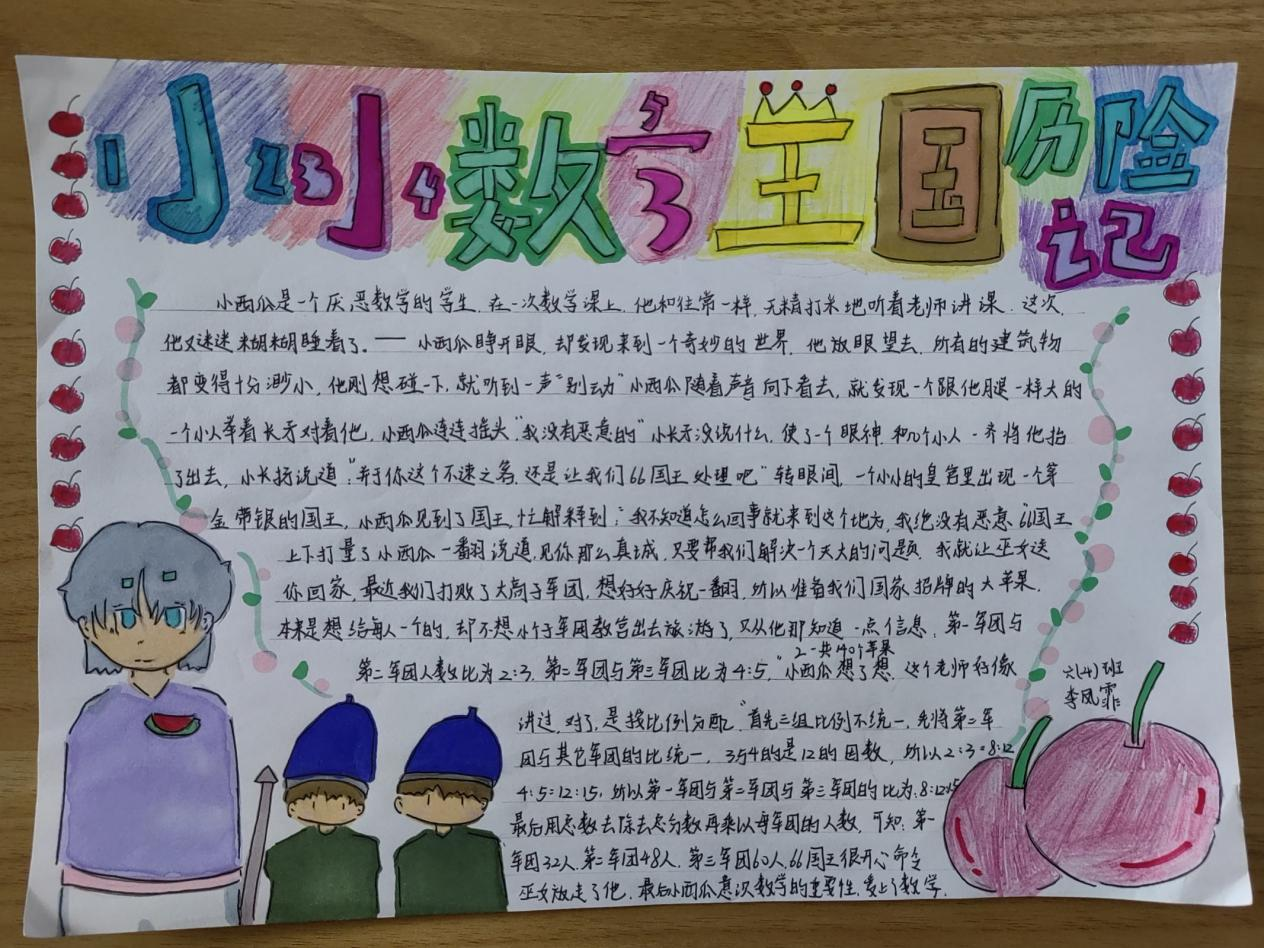 1小23小4数5字王国历险
记
小西瓜是一个厌恶数学的学生,在一次数学课上,他和往常一样,无精打采地听着老师讲课.这次,
他又迷迷糊糊睡着了.——小西瓜睁开眼,却发现来到一个奇妙的世界.他放眼望去,所有的建筑物
都变得十分渺小,他刚想碰一下,就听到一声"别动"小西瓜随着声音向下看去,就发现一个跟他腿一样大的
一个小人举着长矛对着他,小西瓜连连摇头,"我没有恶意的"小长矛没说什么,使了个眼神和几个小人一齐将他抬
了出去,小长矛说道:"于你这个不速之客,还是让我们66国王处理吧"转眼间,一个小小的皇宫里出现一个穿
金带银的国王,小西瓜见到了国王,忙解释到:"我不知道怎么回事就来到这个地方,我绝没有恶意"66国王
上下打量了小西瓜一翻说道,见你那么真诚,只要帮我们解决一个天大的问题,我就让巫女送
你回家,最近我们打败了大高子军团,想好好庆祝一翻,所以准备我们国家招牌的大苹果.
本来是想给每人一个的,却不想小于军用教官出去旅游了,又从他那知道一点信息,第一军团与
2一共140个苹果
第二军团人数比为2:3,第二军团与第三军团比为4:5,"小西瓜想了想,这个老师好像
六(4)班
李凤霏
讲过,对了,是按比例分配."首先三组比例不统一,先将第二军
团与其它军团的比统一,3与4的是12的因数,所以2:3=8:12
4:5=12:15,所以第一军团与第二军团与第三军团的比为8:12:15
最后用总数去除去总分数再乘以每军团的人数,可知,第一
军团32人,第二军团48人,第三军团60人,66国王很开心命令
巫女放走了他,最后小西瓜意识数学的重要性,爱上了数学.